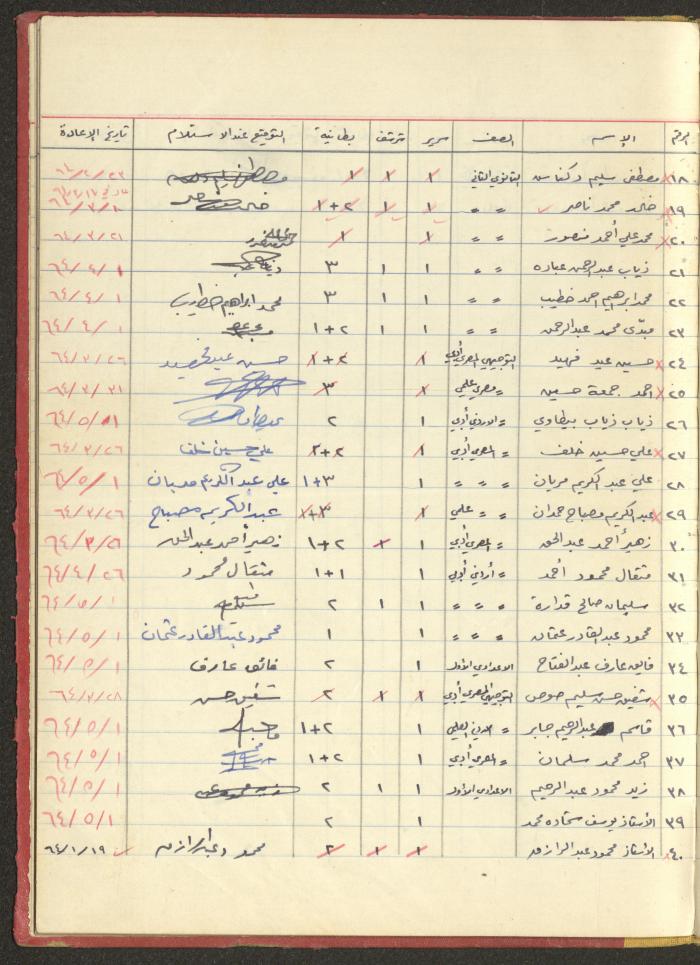 الرقم الإسم الصف سرير شرشف بطانية التوقيع عند الاستلام تاريخ الإعادة
١٨ مصطفى سليم الثانوي الثاني ١ ١ ١
١٩ خالد محمد ناصر = = ١ ١ ٢+١
٢٠ محمد علي أحمد منصور = = ١ ١ ٦٤/٣/٢١
٢١ ذياب عبد الرحمن عباده = = ١ ١ ٣ ٦٤/٤/١
٢٢ محمد ابراهيم احمد خطيب = = ١ ١ ٣ محمد ابراهيم خطيب ٦٤/٤/١
٢٣ محمد عبد الرحمن = = ١ ١ ٢+١ ٦٤/٤/١
٢٤ حسين عيد فهيد التوجيهي المصري أدبي ١ ٢+١ حسين عيد فهيد ٦٤/٣/٢٦
٢٥ احمد جمعة حسين = مصري علمي ١ ٣ ٦٤/٣/٣١
٢٦ ذياب ذياب بيطاوي = الاردني أدبي ١ ٢ ٦٤/٥/١
٢٧ علي حسين خلف = المصري أدبي ١ ٢+٢ علي حسين خلف ٦٤/٣/٢٦
٢٨ علي عبد الكريم = = = ١ ٣+١ علي عبد الكريم ٦٤/٥/١
٢٩ عبد الكريم مصباح حمدان = = علمي ١ ٣+١ عبد الكريم مصباح ٦٤/٣/٢٦
٣٠ زهير أحمد عبد الحق = المصري أدبي ١ ١ ٢+١ زهير أحمد عبد الحق
٣١ مثقال محمود احمد = أردني أدبي ١ ١+١ مثقال محمود ٦٤/٤/٢٦
٣٢ سليمان صالح قدارة = = = ١ ١ ٢ ٦٤/٥/١
٣٣ محمود عبد القادر عثمان = = = ١ ١ محمود عبد القادر عثمان ٦٤/٥/١
٣٤ فايق عارف عبد الفتاح الاعدادي الأول ١ ٢ فائق عارف ٦٤/٥/١
٣٥ شفيق حسن سليم التوجيهي المصري أدبي ١ ١ ٢ شفيق حسن ٦٤/٢/٢٨
٣٦ قاسم عبد الرحيم جابر = ١ ٢+١ ٦٤/٥/١
٣٧ احمد محمد سلمان = المصري أدبي ١ ٢+١ ٦٤/٥/١
٣٨ زيد محمود عبد الرحيم الاعدادي الأول ١ ١ ٢ ٦٤/٥/١
٣٩ الأستاذ يوسف محمد ١ ٢ ٦٤/٥/١
٤٠ الأستاذ محمود عبد الرازق ١ ١ ٢ محمود عبد الرازق ٦٤/١/١٩